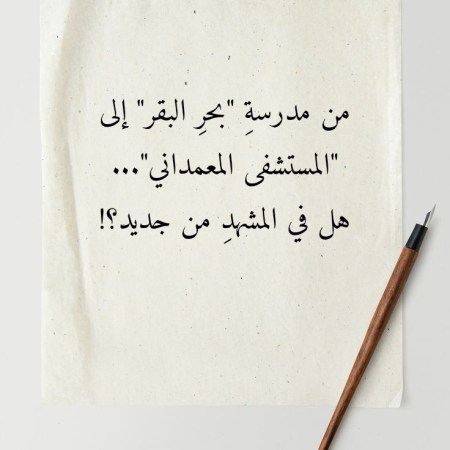 من مدرسةِ "بحرِ البقر" إلى
"المستشفى المعمداني"...
هل في المشهدِ من جديد؟!